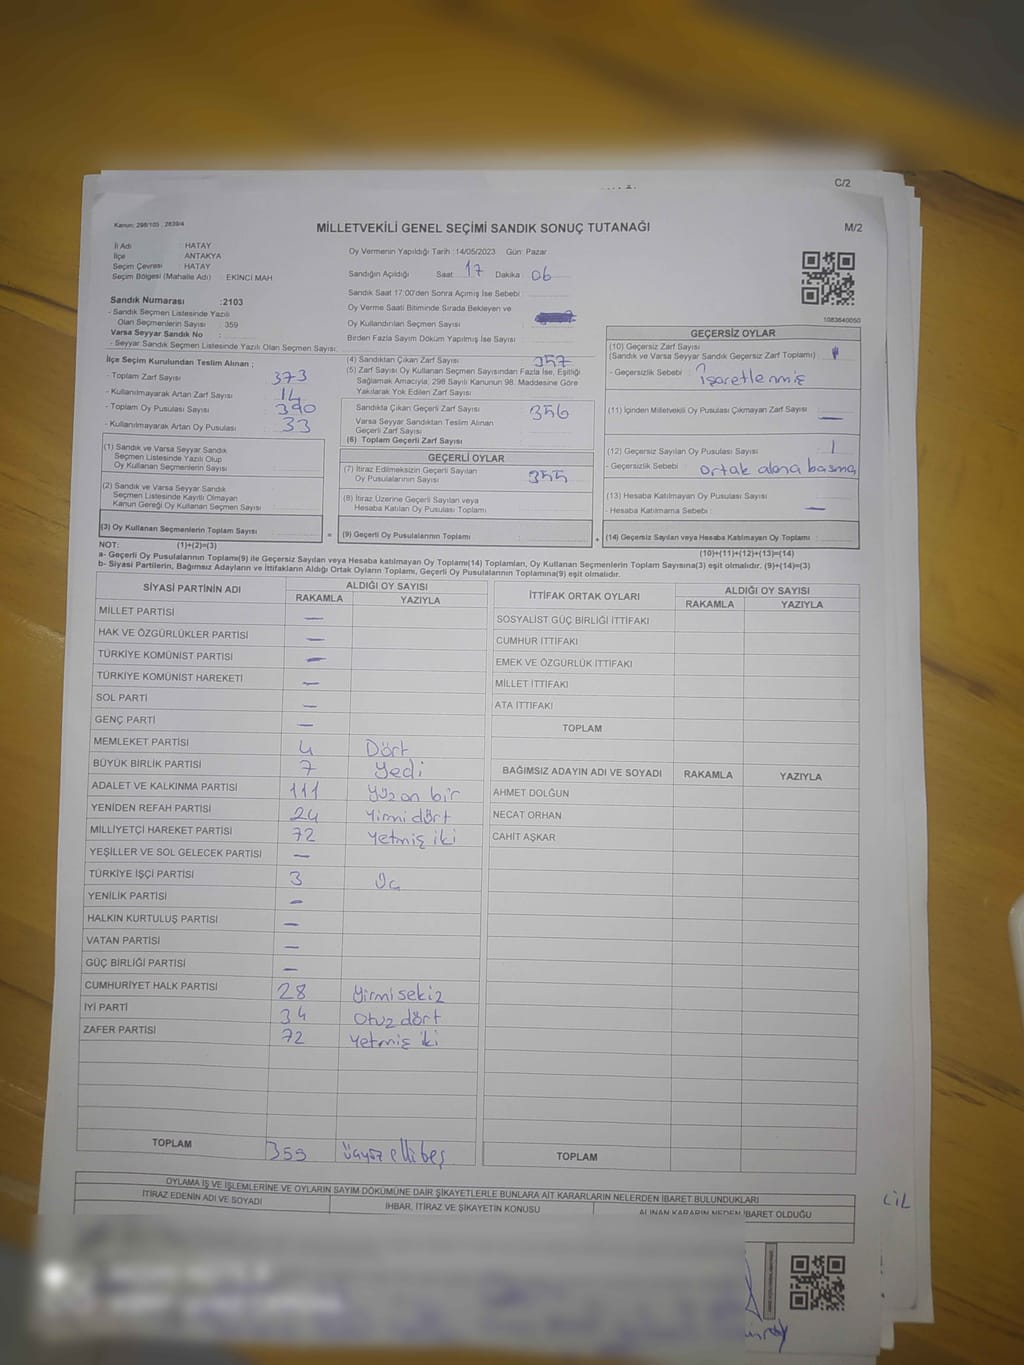 C/2
Kanun: 298/103 : 2839/4
MİLLETVEKİLİ GENEL SEÇİMİ SANDIK SONUÇ TUTANAĞI
M/2
İl Adı : HATAY
İlçe : ANTAKYA
Seçim Çevresi : HATAY
Seçim Bölgesi (Mahalle Adı) : EKİNCİ MAH
Sandık Numarası :2103
- Sandık Seçmen Listesinde Yazılı
Olan Seçmenlerin Sayısı : 359
Varsa Seyyar Sandık No :
- Seyyar Sandık Seçmen Listesinde Yazılı Olan Seçmen Sayısı:
Oy Vermenin Yapıldığı Tarih :14/05/2023 Gün: Pazar
Sandığın Açıldığı Saat 17 Dakika 06
Sandık Saat 17:00'den Sonra Açımış İse Sebebi :
Oy Verme Saati Bitiminde Sırada Bekleyen ve
Oy Kullandırılan Seçmen Sayısı :
Birden Fazla Sayım Döküm Yapılmış İse Sayısı :
1083640050
İlçe Seçim Kurulundan Teslim Alınan ;
- Toplam Zarf Sayısı : 373
- Kullanılmayarak Artan Zarf Sayısı : 14
- Toplam Oy Pusulası Sayısı : 390
- Kullanılmayarak Artan Oy Pusulası : 33
(1) Sandık ve Varsa Seyyar Sandık
Seçmen Listesinde Yazılı Olup
Oy Kullanan Seçmenlerin Sayısı :
(2) Sandık ve Varsa Seyyar Sandık
Seçmen Listesinde Kayıtlı Olmayan
Kanun Gereği Oy Kullanan Seçmen Sayısı :
(3) Oy Kullanan Seçmenlerin Toplam Sayısı :
(4) Sandıktan Çıkan Zarf Sayısı : 357
(5) Zarf Sayısı Oy Kullanan Seçmen Sayısından Fazla İse, Eşitliği
Sağlamak Amacıyla, 298 Sayılı Kanunun 98. Maddesine Göre
Yakılarak Yok Edilen Zarf Sayısı :
Sandıkta Çıkan Geçerli Zarf Sayısı : 356
Varsa Seyyar Sandıktan Teslim Alınan
Geçerli Zarf Sayısı :
(6) Toplam Geçerli Zarf Sayısı :
GEÇERLİ OYLAR
(7) İtiraz Edilmeksizin Geçerli Sayılan
Oy Pusulalarının Sayısı : 355
(8) İtiraz Üzerine Geçerli Sayılan veya
Hesaba Katılan Oy Pusulası Toplamı :
= (9) Geçerli Oy Pusulalarının Toplamı :
GEÇERSİZ OYLAR
(10) Geçersiz Zarf Sayısı :
(Sandık ve Varsa Seyyar Sandık Geçersiz Zarf Toplamı)
- Geçersizlik Sebebi : İşaretlenmiş
(11) İçinden Milletvekili Oy Pusulası Çıkmayan Zarf Sayısı : —
(12) Geçersiz Sayılan Oy Pusulası Sayısı : 1
- Geçersizlik Sebebi : ortak alana basma
(13) Hesaba Katılmayan Oy Pusulası Sayısı :
- Hesaba Katılmama Sebebi : —
+ (14) Geçersiz Sayılan veya Hesaba Katılmayan Oy Toplamı :
NOT: (1)+(2)=(3)
(10)+(11)+(12)+(13)=(14)
a- Geçerli Oy Pusulalarının Toplamı(9) ile Geçersiz Sayılan veya Hesaba katılmayan Oy Toplamı(14) Toplamları, Oy Kullanan Seçmenlerin Toplam Sayısına(3) eşit olmalıdır. (9)+(14)=(3)
b- Siyasi Partilerin, Bağımsız Adayların ve İttifakların Aldığı Ortak Oyların Toplamı, Geçerli Oy Pusulalarının Toplamına(9) eşit olmalıdır.
SİYASİ PARTİNİN ADI ALDIĞI OY SAYISI
RAKAMLA YAZIYLA
MİLLET PARTİSİ —
HAK VE ÖZGÜRLÜKLER PARTİSİ —
TÜRKİYE KOMÜNİST PARTİSİ —
TÜRKİYE KOMÜNİST HAREKETİ —
SOL PARTİ —
GENÇ PARTİ —
MEMLEKET PARTİSİ 4 Dört
BÜYÜK BİRLİK PARTİSİ 7 yedi
ADALET VE KALKINMA PARTİSİ 111 yüz on bir
YENİDEN REFAH PARTİSİ 24 yirmi dört
MİLLİYETÇİ HAREKET PARTİSİ 72 yetmiş iki
YEŞİLLER VE SOL GELECEK PARTİSİ —
TÜRKİYE İŞÇİ PARTİSİ 3 Üç
YENİLİK PARTİSİ —
HALKIN KURTULUŞ PARTİSİ —
VATAN PARTİSİ —
GÜÇ BİRLİĞİ PARTİSİ —
CUMHURİYET HALK PARTİSİ 28 yirmi sekiz
İYİ PARTİ 34 otuz dört
ZAFER PARTİSİ 72 yetmiş iki
TOPLAM 355 üçyüz elli beş
İTTİFAK ORTAK OYLARI ALDIĞI OY SAYISI
RAKAMLA YAZIYLA
SOSYALİST GÜÇ BİRLİĞİ İTTİFAKI
CUMHUR İTTİFAKI
EMEK VE ÖZGÜRLÜK İTTİFAKI
MİLLET İTTİFAKI
ATA İTTİFAKI
TOPLAM
BAĞIMSIZ ADAYIN ADI VE SOYADI RAKAMLA YAZIYLA
AHMET DOLĞUN
NECAT ORHAN
CAHİT AŞKAR
TOPLAM
OYLAMA İŞ VE İŞLEMLERİNE VE OYLARIN SAYIM DÖKÜMÜNE DAİR ŞİKAYETLERLE BUNLARA AİT KARARLARIN NELERDEN İBARET BULUNDUKLARI
İTİRAZ EDENİN ADI VE SOYADI İHBAR, İTİRAZ VE ŞİKAYETİN KONUSU ALINAN KARARIN NEDEN İBARET OLDUĞU
CİL